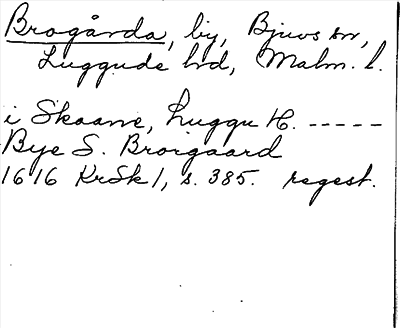 Brogårda, by, Bjuvs sn,
Luggude hd, Malm. l.
i Skaane, Luggu H. -----
Bye S. Broigaard
1616 KrSk 1, s. 385. regest.